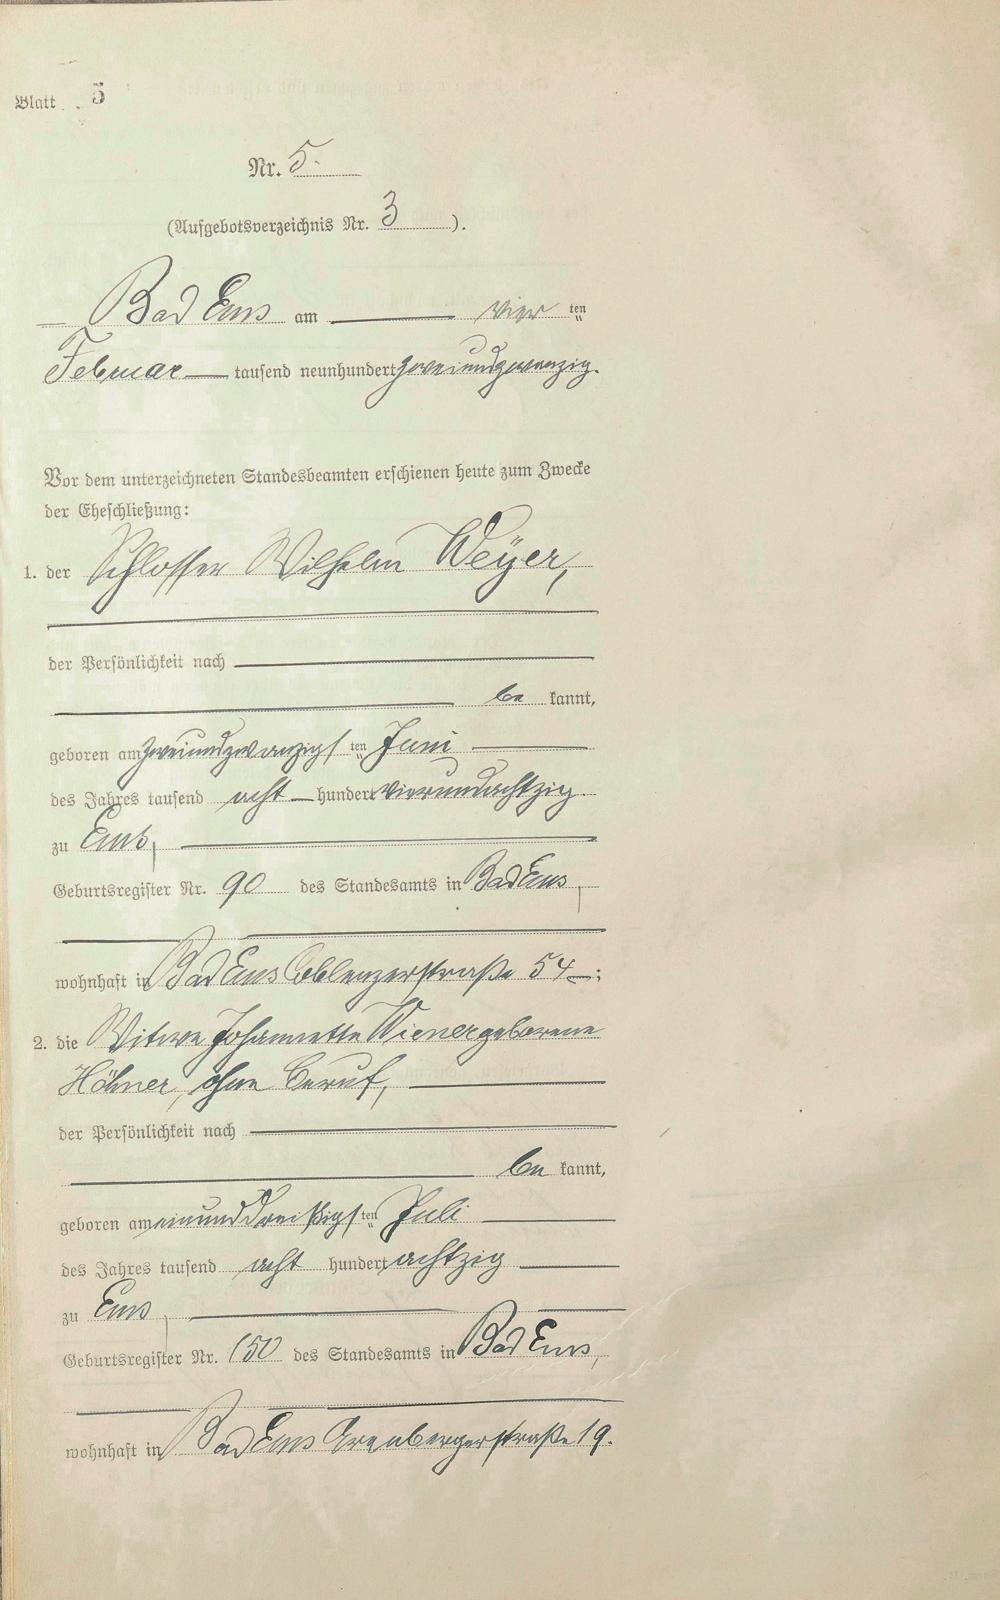 Blatt 5
Nr. 5.
(Aufgebotsverzeichnis Nr. 3).
Bad Ems am vier ten
Februar tausend neunhundert zweiundzwanzig.
Vor dem unterzeichneten Standesbeamten erschienen heute zum Zwecke
der Eheschließung:
1. der Schlosser Wilhelm Weyer,
der Persönlichkeit nach
be kannt,
geboren am zweiundzwanzigs ten Juni
des Jahres tausend acht hundert vierundachtzig
zu Ems,
Geburtsregister Nr. 90 des Standesamts in Bad Ems,
wohnhaft in Bad Ems Coblenzerstraße 54;
2. die Witwe Johannette Wiener geborene
Höhner, ohne Beruf,
der Persönlichkeit nach
be kannt,
geboren am einunddreißigs ten Juli
des Jahres tausend acht hundert achtzig
zu Ems,
Geburtsregister Nr. 150 des Standesamts in Bad Ems,
wohnhaft in Bad Ems Arenbergerstraße 19.